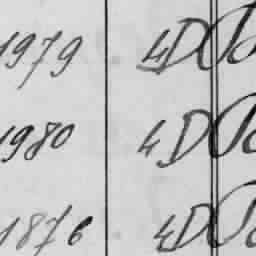 1979 4D
1980 4D
1876 4D